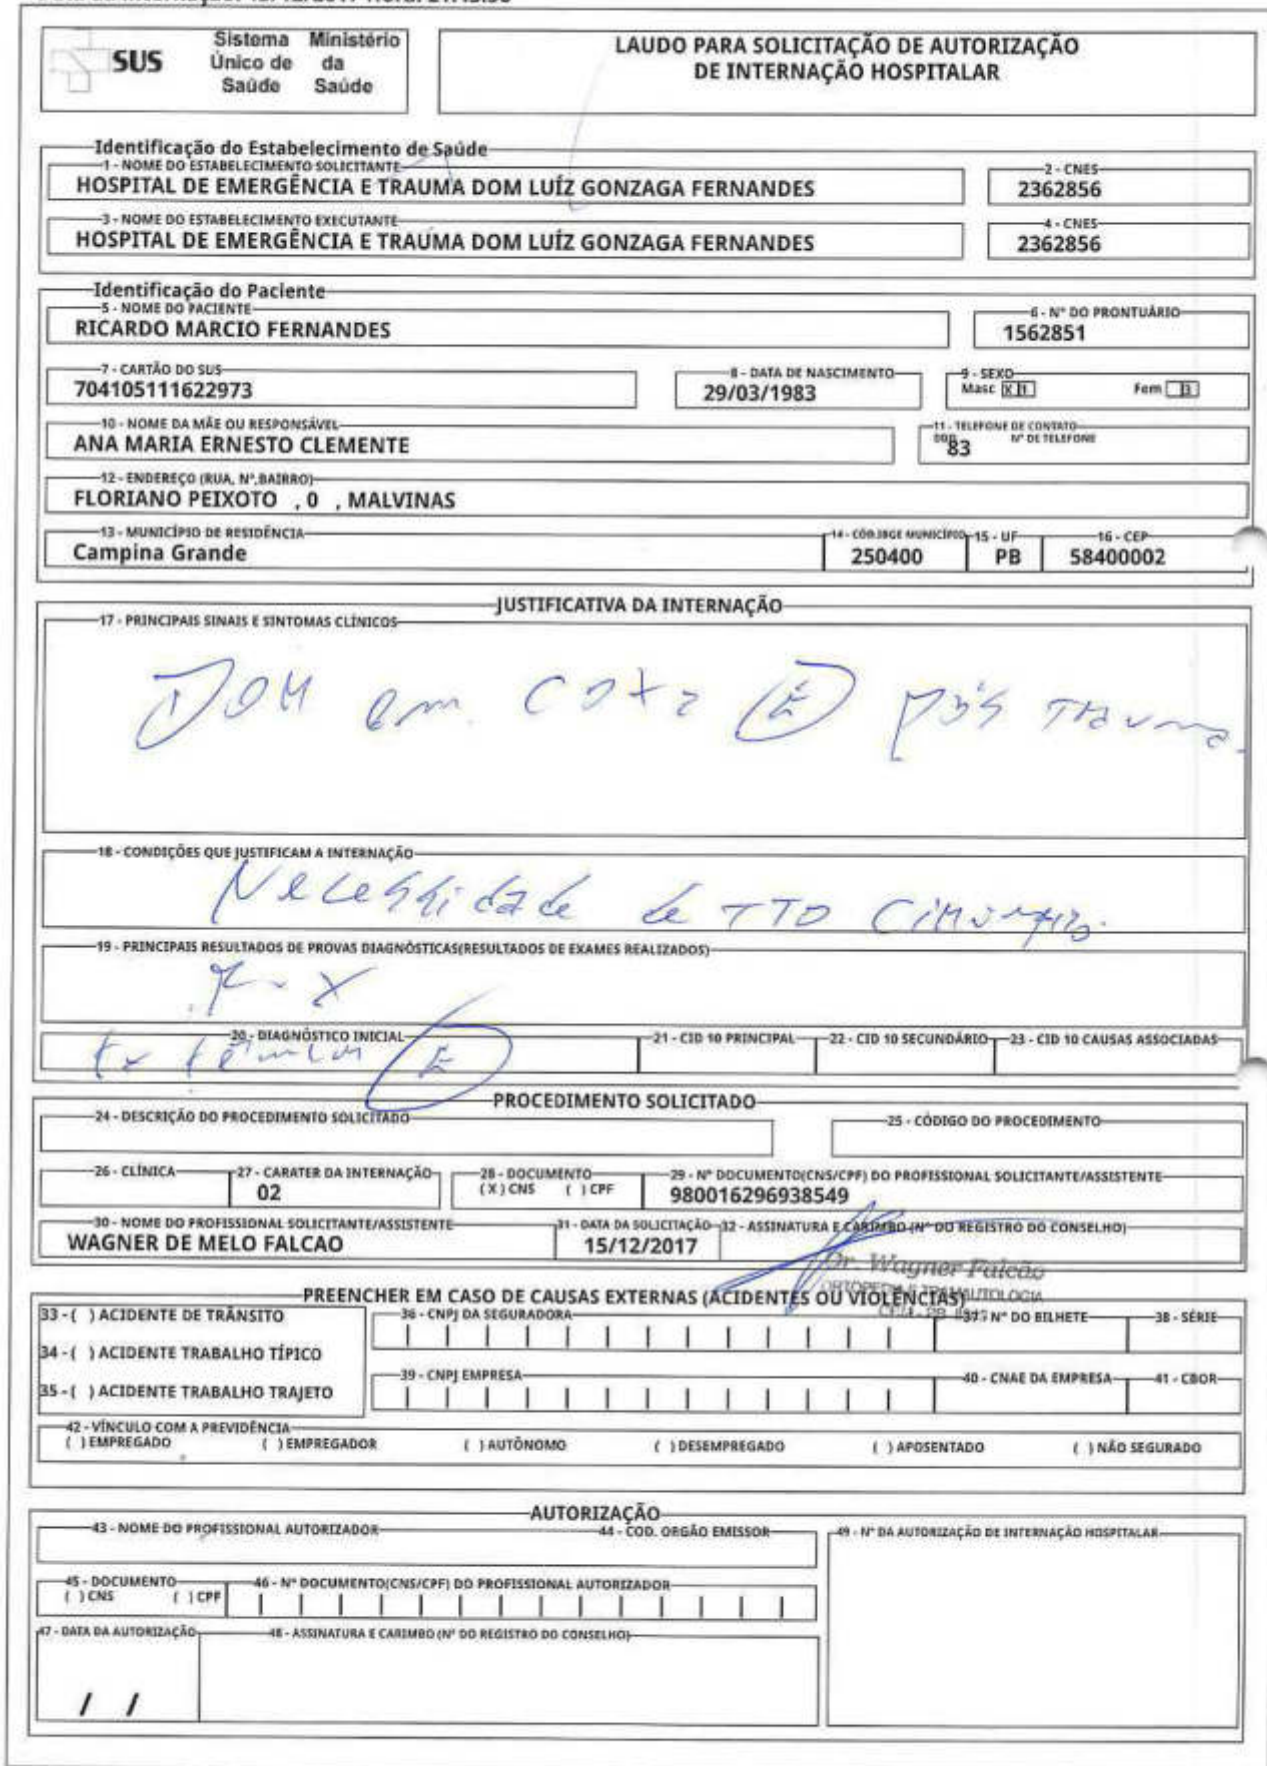 SUS
Sistema Único de Saúde
Ministério da Saúde
LAUDO PARA SOLICITAÇÃO DE AUTORIZAÇÃO
DE INTERNAÇÃO HOSPITALAR
Identificação do Estabelecimento de Saúde
1 - NOME DO ESTABELECIMENTO SOLICITANTE
2 - CNES
HOSPITAL DE EMERGÊNCIA E TRAUMA DOM LUÍZ GONZAGA FERNANDES
2362856
3 - NOME DO ESTABELECIMENTO EXECUTANTE
4 - CNES
HOSPITAL DE EMERGÊNCIA E TRAUMA DOM LUÍZ GONZAGA FERNANDES
2362856
Identificação do Paciente
5 - NOME DO PACIENTE
6 - Nº DO PRONTUÁRIO
RICARDO MARCIO FERNANDES
1562851
7 - CARTÃO DO SUS
8 - DATA DE NASCIMENTO
9 - SEXO
704105111622973
29/03/1983
Masc X 1 Fem 3
10 - NOME DA MÃE OU RESPONSÁVEL
11 - TELEFONE DE CONTATO
ANA MARIA ERNESTO CLEMENTE
DDD 83 Nº DE TELEFONE
12 - ENDEREÇO (RUA, Nº,BAIRRO)
FLORIANO PEIXOTO , 0 , MALVINAS
13 - MUNICÍPIO DE RESIDÊNCIA
14 - CÓD.IBGE MUNICÍPIO
15 - UF
16 - CEP
Campina Grande
250400
PB
58400002
JUSTIFICATIVA DA INTERNAÇÃO
17 - PRINCIPAIS SINAIS E SINTOMAS CLÍNICOS
Dor em coxa (E) pós trauma.
18 - CONDIÇÕES QUE JUSTIFICAM A INTERNAÇÃO
Necessidade de TTO Cirúrgico.
19 - PRINCIPAIS RESULTADOS DE PROVAS DIAGNÓSTICAS(RESULTADOS DE EXAMES REALIZADOS)
R-X
20 - DIAGNÓSTICO INICIAL
21 - CID 10 PRINCIPAL
22 - CID 10 SECUNDÁRIO
23 - CID 10 CAUSAS ASSOCIADAS
Fx (E)
PROCEDIMENTO SOLICITADO
24 - DESCRIÇÃO DO PROCEDIMENTO SOLICITADO
25 - CÓDIGO DO PROCEDIMENTO
26 - CLÍNICA
27 - CARATER DA INTERNAÇÃO
28 - DOCUMENTO
29 - Nº DOCUMENTO(CNS/CPF) DO PROFISSIONAL SOLICITANTE/ASSISTENTE
02
( X ) CNS ( ) CPF
980016296938549
30 - NOME DO PROFISSIONAL SOLICITANTE/ASSISTENTE
31 - DATA DA SOLICITAÇÃO
32 - ASSINATURA E CARIMBO (Nº DO REGISTRO DO CONSELHO)
WAGNER DE MELO FALCAO
15/12/2017
Dr. Wagner Falcão
ORTOPEDIA E TRAUMATOLOGIA
PREENCHER EM CASO DE CAUSAS EXTERNAS (ACIDENTES OU VIOLÊNCIAS)
33 - ( ) ACIDENTE DE TRÂNSITO
36 - CNPJ DA SEGURADORA
37 - Nº DO BILHETE
38 - SÉRIE
34 - ( ) ACIDENTE TRABALHO TÍPICO
35 - ( ) ACIDENTE TRABALHO TRAJETO
39 - CNPJ EMPRESA
40 - CNAE DA EMPRESA
41 - CBOR
42 - VÍNCULO COM A PREVIDÊNCIA
( ) EMPREGADO ( ) EMPREGADOR ( ) AUTÔNOMO ( ) DESEMPREGADO ( ) APOSENTADO ( ) NÃO SEGURADO
AUTORIZAÇÃO
43 - NOME DO PROFISSIONAL AUTORIZADOR
44 - COD. ORGÃO EMISSOR
49 - Nº DA AUTORIZAÇÃO DE INTERNAÇÃO HOSPITALAR
45 - DOCUMENTO
46 - Nº DOCUMENTO(CNS/CPF) DO PROFISSIONAL AUTORIZADOR
( ) CNS ( ) CPF
47 - DATA DA AUTORIZAÇÃO
48 - ASSINATURA E CARIMBO (Nº DO REGISTRO DO CONSELHO)
/ /